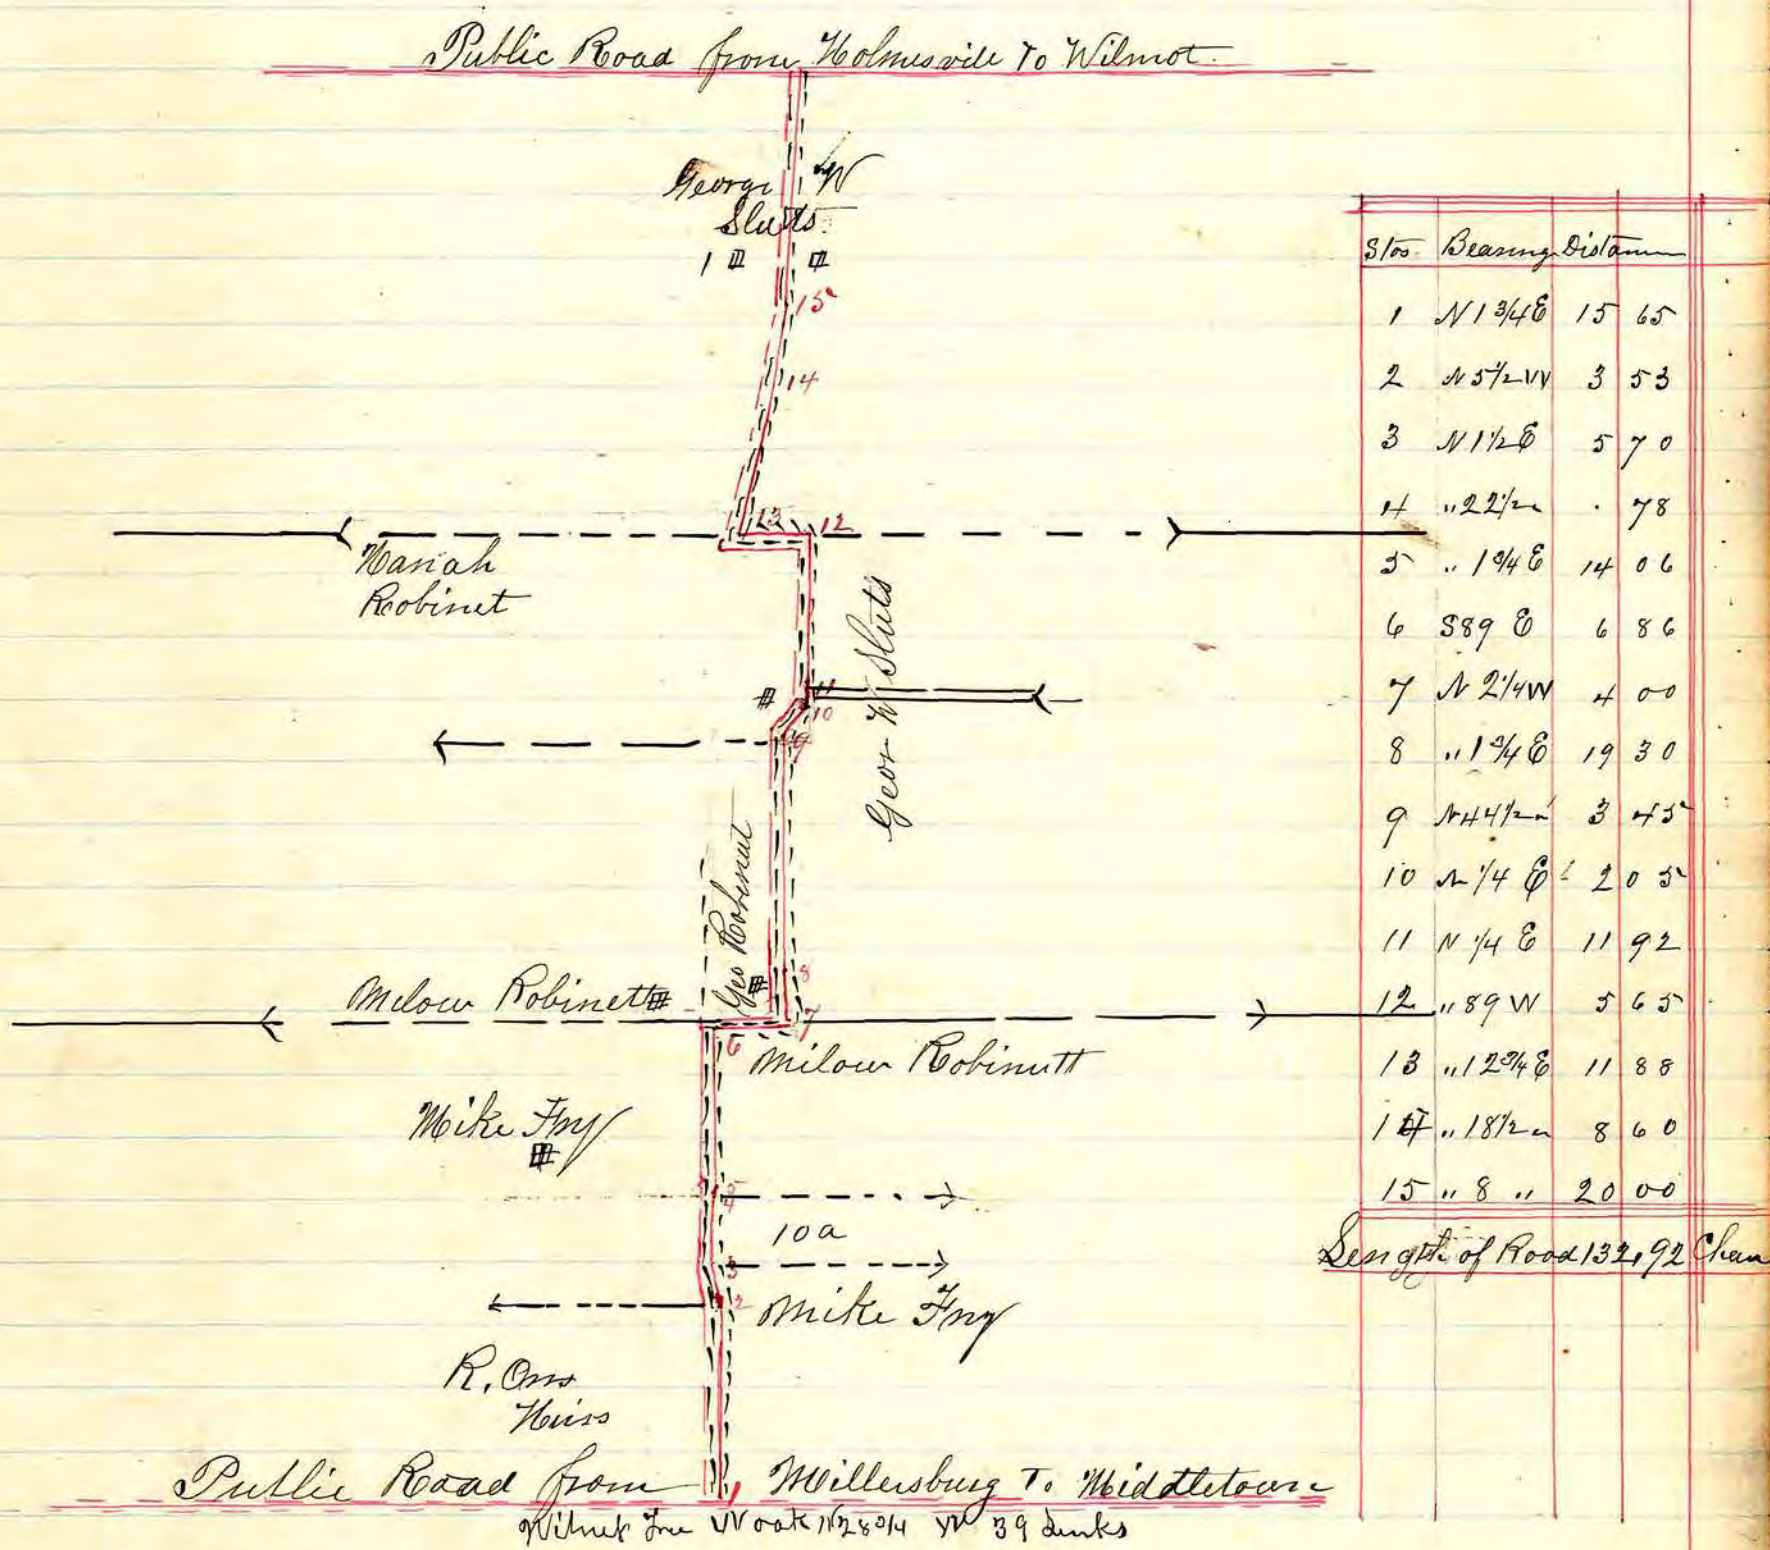 Public Road from Holmesvile To Wilmot.
George W
Sluts.
1
15
14
13 12
Mariah
Robinet
Geor W Sluts
11
10
9
Geo Robinet
8
Milow Robinett
7
6
Milow Robinutt
Mike Fry
5
4
10a
3
2
Mike Fry
R. Orrs
Heirs
1
Public Road from Millersburg To Middletown
Witness Tree W oak N 28 3/4 W 39 Links
Stas. Bearing Distance
1 N 1 3/4 E 15 65
2 N 5 1/2 W 3 53
3 N 1 1/2 E 5 70
4 " 22 1/2 " . 78
5 " 1 3/4 E 14 06
6 S 89 E 6 86
7 N 2 1/4 W 4 00
8 " 1 3/4 E 19 30
9 N 44 1/2 " 3 45
10 N 1/4 E 2 05
11 N 1/4 E 11 92
12 " 89 W 5 65
13 " 12 3/4 E 11 88
14 " 18 1/2 " 8 60
15 " 8 " 20 00
Length of Road 132,92 Chan